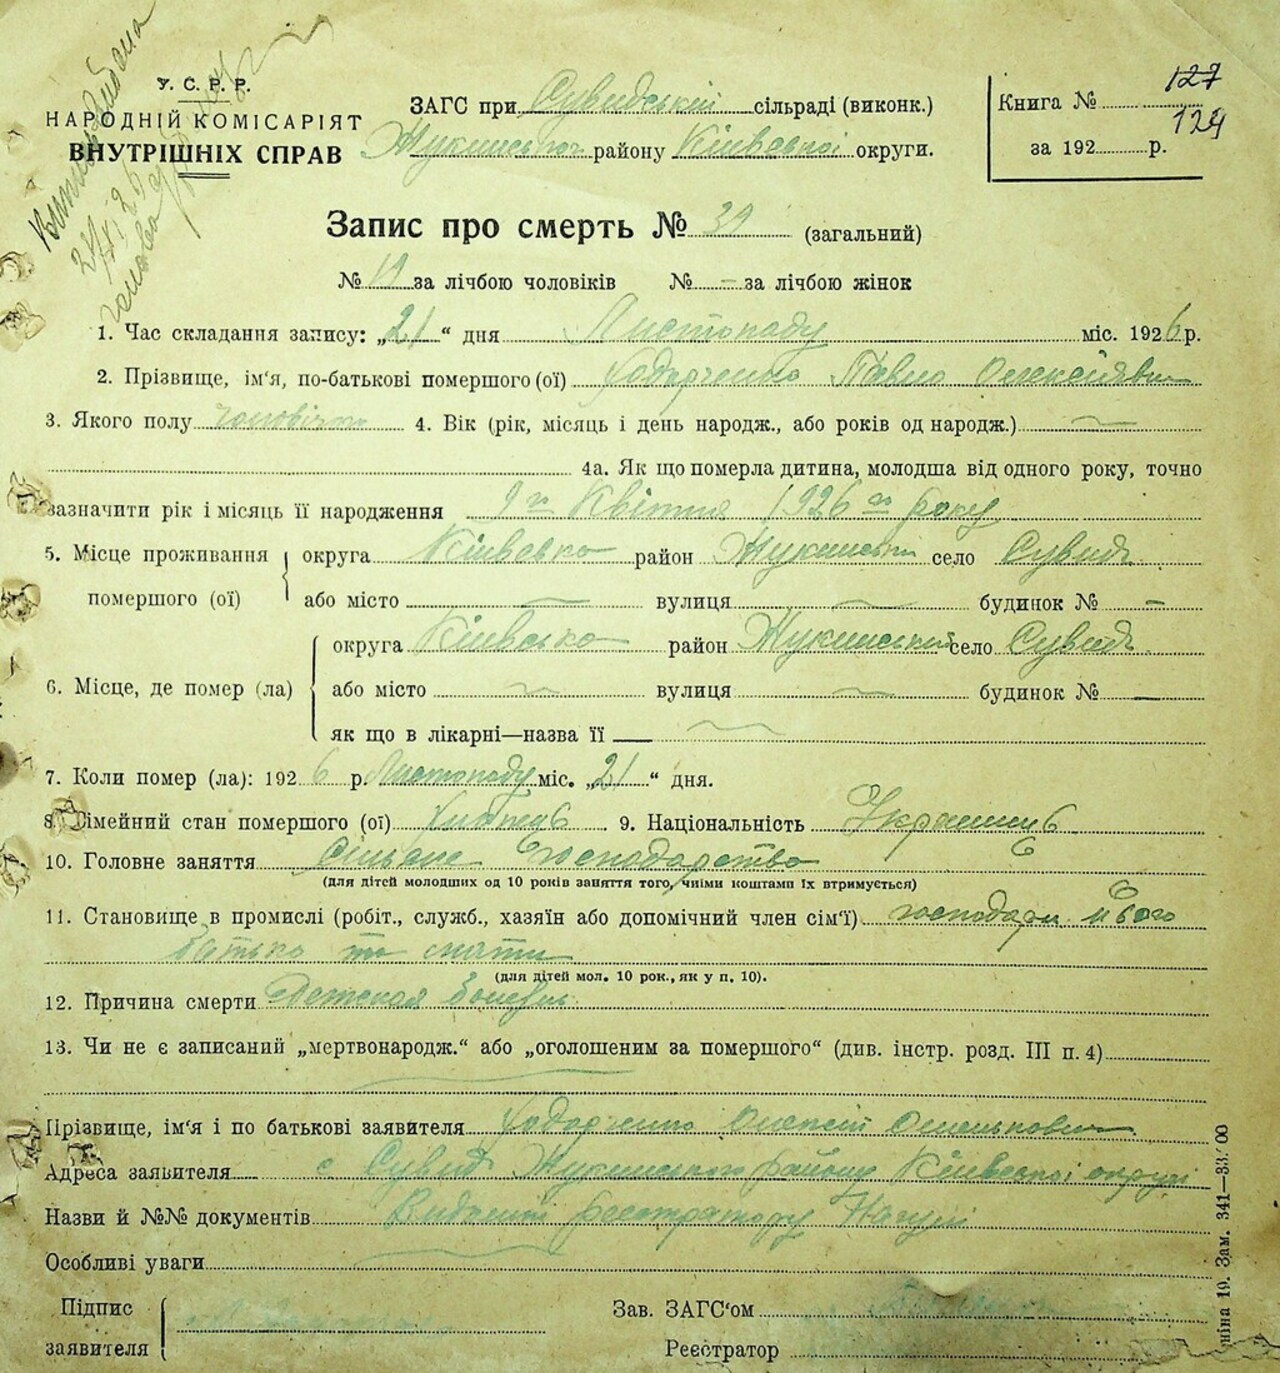 У. С. Р. Р.
НАРОДНІЙ КОМІСАРІЯТ
ВНУТРІШНІХ СПРАВ
ЗАГС при Сувидській сільраді (виконк.)
Жукинського району Київської округи.
Книга № 127
124
за 192 р.
Запис про смерть № 39 (загальний)
№ 19 за лічбою чоловіків № - за лічбою жінок
1. Час складання запису: „21“ дня Листопаду міс. 1926 р.
2. Прізвище, ім'я, по-батькові помершого (ої) Ходорченко Павло Олексійович
3. Якого полу чоловічо 4. Вік (рік, місяць і день народж., або років од народж.)
4а. Як що померла дитина, молодша від одного року, точно
зазначити рік і місяць її народження 9го Квітня 1926го року
5. Місце проживання помершого (ої)
округа Київсько район Жукинськи село Сувид
або місто вулиця будинок № -
6. Місце, де помер (ла)
округа Київсько район Жукинський село Сувид
або місто вулиця будинок №
як що в лікарні—назва її
7. Коли помер (ла): 1926 р. Листопаду міс. „21“ дня.
8. Сімейний стан помершого (ої) Хлопець 9. Національність Українець
10. Головне заняття Сільське господарство
(для дітей молодших од 10 років заняття того, чиїми коштами їх втримується)
11. Становище в промислі (робіт., служб., хазяїн або допомічний член сім'ї) господари його
батько та мати
(для дітей мол. 10 рок., як у п. 10).
12. Причина смерти Детская болезнь
13. Чи не є записаний „мертвонародж.“ або „оголошеним за помершого“ (див. інстр. розд. III п. 4)
Прізвище, ім'я і по батькові заявителя Ходорченко Олексій Омелькович
Адреса заявителя с Сувид Жукинського району Київської округи
Назви й №№ документів Видомий реєстратору
Особливі уваги
Підпис заявителя
Зав. ЗАГС'ом
Реєстратор
Зам. 341—33.00